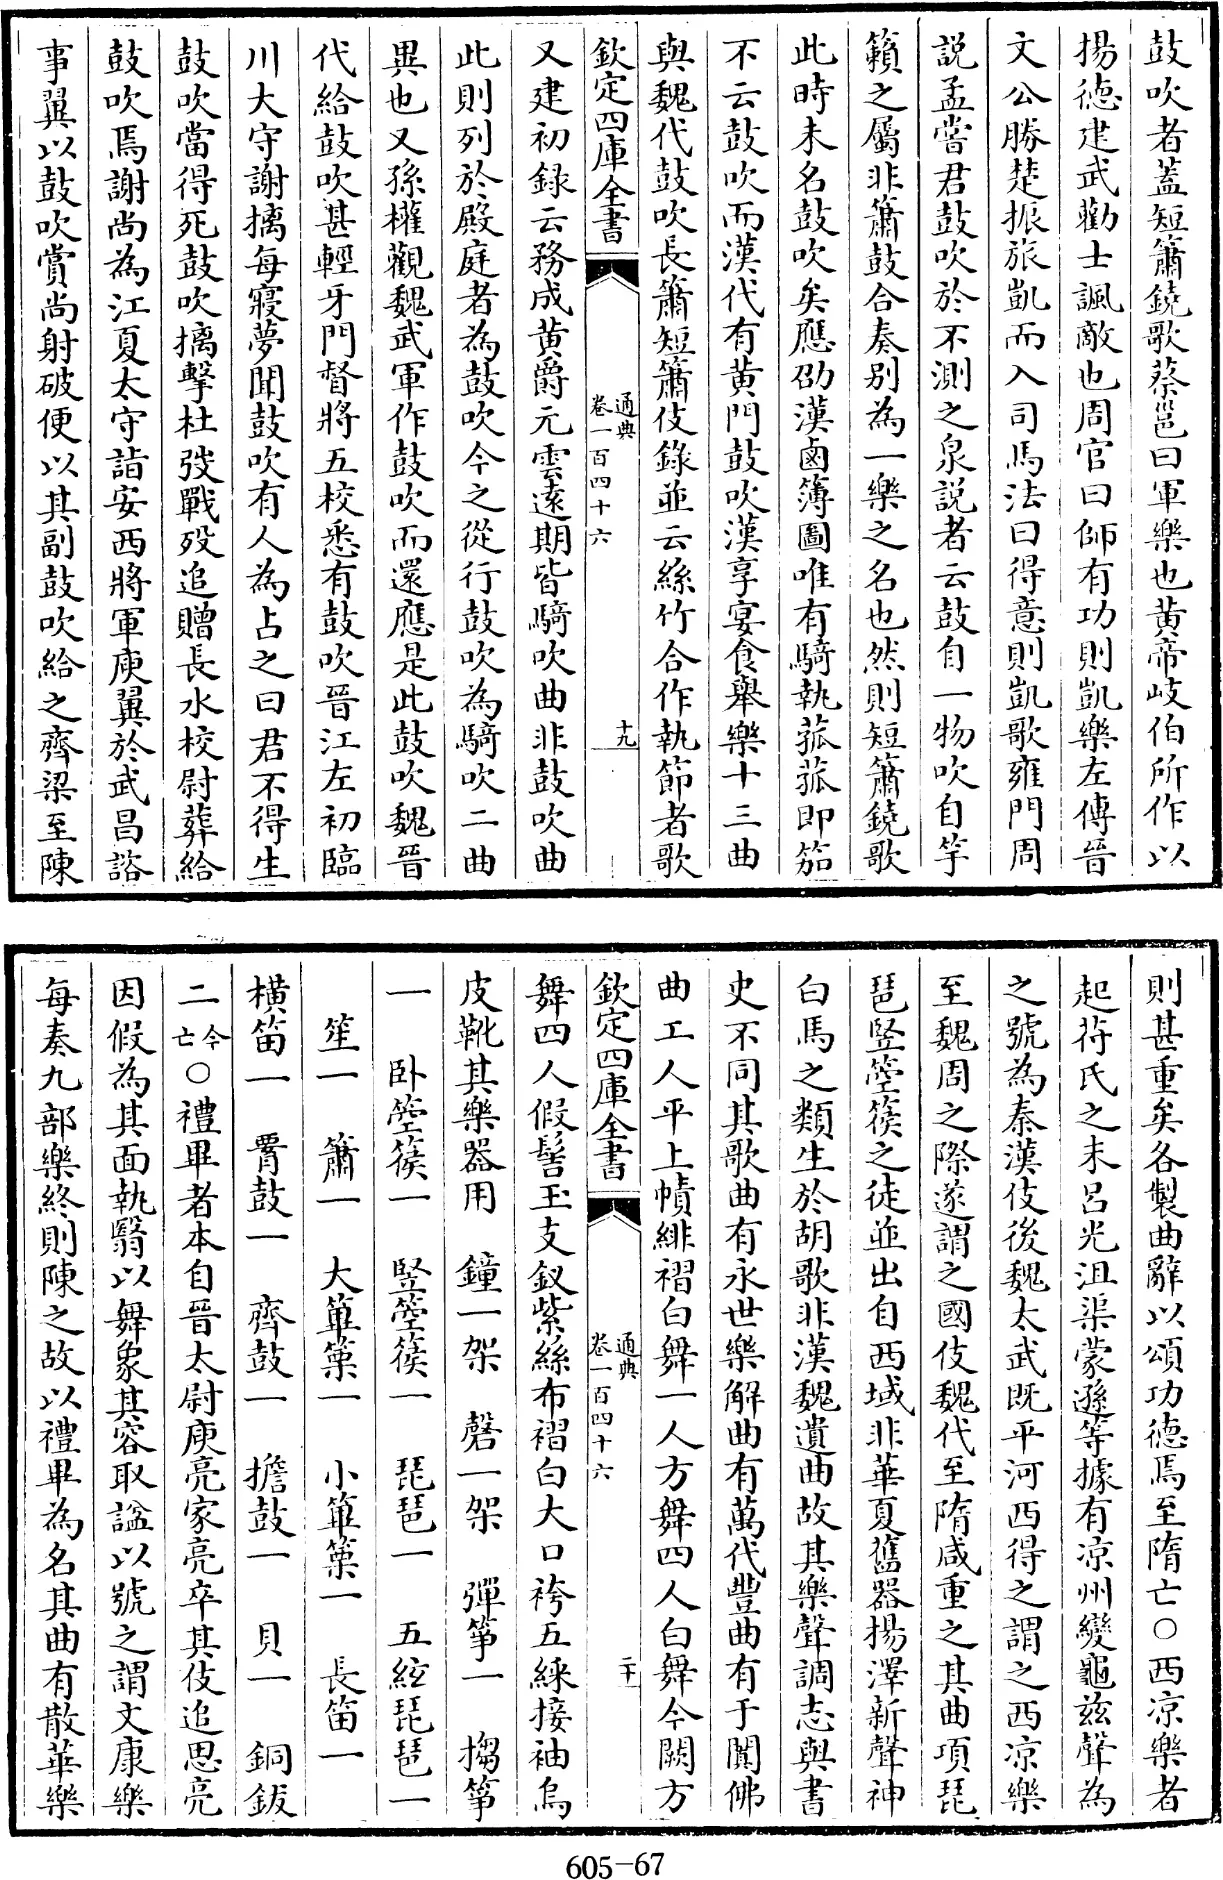 鼓吹者蓋短簫鐃歌蔡邕曰軍樂也黄帝岐伯所作以
揚徳建武勸士諷敵也周官曰師有功則凱樂左傳晉
文公勝楚振旅凱而入司馬法曰得意則凱歌雍門周
説孟嘗君鼓吹於不測之泉説者云鼓自一物吹自竽
籟之屬非簫鼓合奏别為一樂之名也然則短簫鐃歌
此時未名鼓吹矣應劭漢鹵簿圖唯有騎執菰菰即笳
不云鼓吹而漢代有黄門鼓吹漢享宴食舉樂十三曲
與魏代鼓吹長簫短簫伎錄並云絲竹合作執節者歌
欽定四庫全書
通典
卷一百四十六
十九
又建初録云務成黄爵元雲遠期皆騎吹曲非鼓吹曲
此則列於殿庭者為鼓吹今之從行鼓吹為騎吹二曲
異也又孫權觀魏武軍作鼓吹而還應是此鼓吹魏晉
代給鼓吹甚輕牙門督將五校悉有鼓吹晉江左初臨
川大守謝摛每寢夢聞鼓吹有人為占之曰君不得生
鼓吹當得死鼓吹摛擊杜弢戰歿追贈長水校尉葬給
鼓吹焉謝尚為江夏太守詣安西將軍庾翼於武昌諮
事翼以鼓吹賞尚射破便以其副鼓吹給之齊梁至陳
則甚重矣各製曲辭以頌功德焉至隋亡○西凉樂者
起苻氏之末吕光沮渠蒙遜等據有凉州變龜兹聲為
之號為秦漢伎後魏太武既平河西得之謂之西凉樂
至魏周之際遂謂之國伎魏代至隋咸重之其曲項琵
琶竪箜篌之徒並出自西域非華夏舊器揚澤新聲神
白馬之類生於胡歌非漢魏遺曲故其樂聲調志與書
史不同其歌曲有永世樂解曲有萬代豐曲有于闐佛
曲工人平上幘緋褶白舞一人方舞四人白舞今闕方
欽定四庫全書
通典
卷一百四十六
二十
舞四人假髻玉支釵紫絲布褶白大口袴五綵接袖烏
皮靴其樂器用 鐘一架 磬一架 彈筝一 搊筝
一 卧箜篌一 竪箜篌一 琵琶一 五絃琵琶一
笙一 簫一 大篳篥一 小篳篥一 長笛一
横笛一 䚯鼓一 齊鼓一 擔鼓一 貝一 銅鈸
二今亡○禮畢者本自晉太尉庾亮家亮卒其伎追思亮
因假為其面執翳以舞象其容取諡以號之謂文康樂
每奏九部樂終則陳之故以禮畢為名其曲有散華樂
605-67